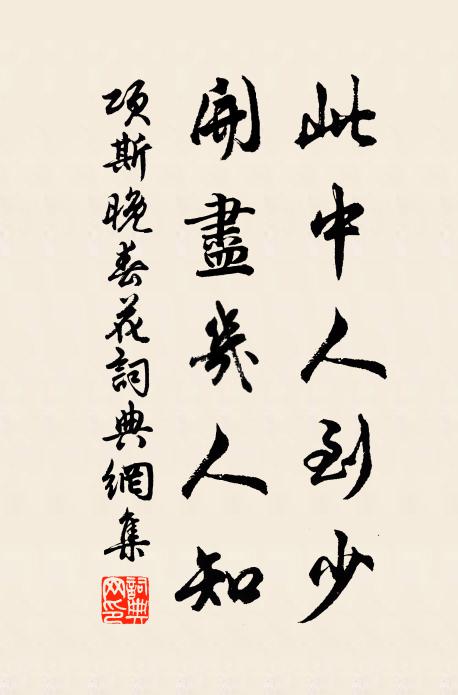 此中人到少
開盡幾人知
項斯晚春花詞典網集
詞典網印